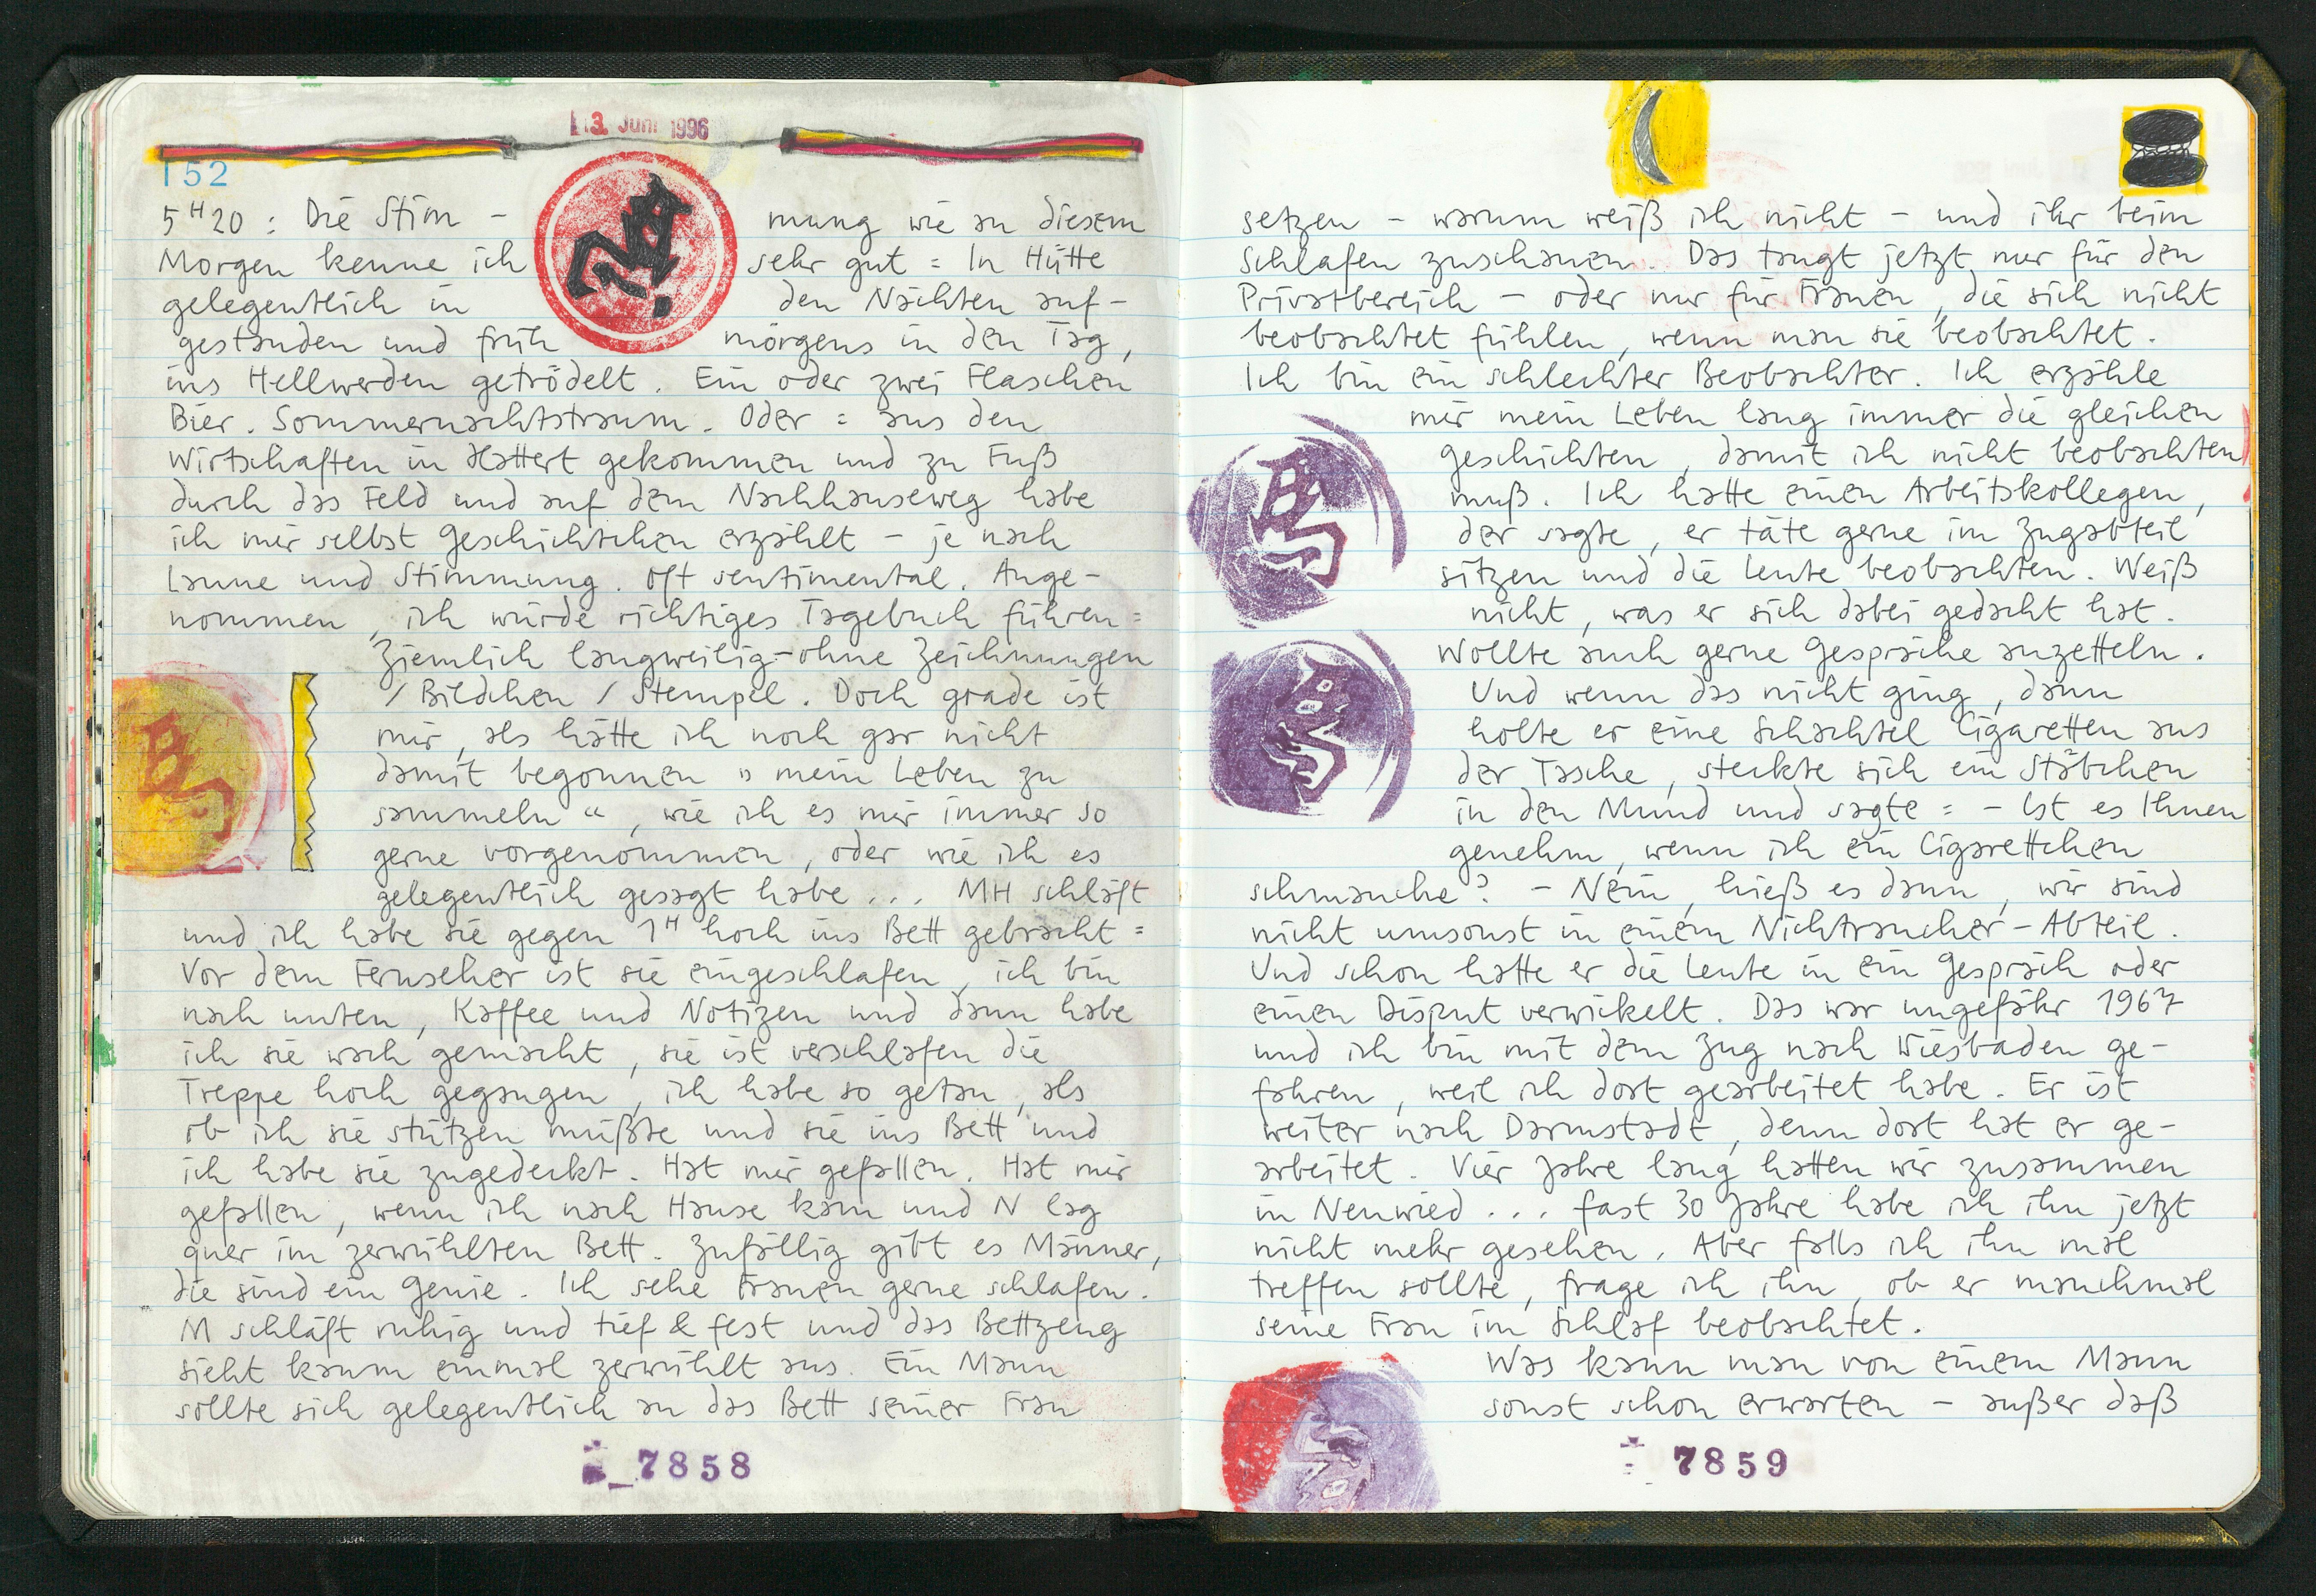 13. Juni 1996
152
5 H 20 : Die Stim - mung wie an diesem
Morgen kenne ich sehr gut = In Hütte
gelegentlich in den Nächten auf-
gestanden und früh morgens in den Tag,
ins Hellwerden getrödelt. Ein oder zwei Flaschen
Bier. Sommernachtstraum. Oder = aus den
Wirtschaften in Hattert gekommen und zu Fuß
durch das Feld und auf dem Nachhauseweg habe
ich mir selbst Geschichtchen erzählt – je nach
Laune und Stimmung. Oft sentimental. Ange-
nommen, ich würde richtiges Tagebuch führen =
Ziemlich langweilig – ohne Zeichnungen
/ Bildchen / Stempel. Doch grade ist
mir, als hätte ich noch gar nicht
damit begonnen „mein Leben zu
sammeln“, wie ich es mir immer so
gerne vorgenommen, oder wie ich es
gelegentlich gesagt habe ... MH schläft
und ich habe sie gegen 1 H hoch ins Bett gebracht =
Vor dem Fernseher ist sie eingeschlafen, ich bin
nach unten, Kaffee und Notizen und dann habe
ich sie wach gemacht, sie ist verschlafen die
Treppe hoch gegangen, ich habe so getan, als
ob ich sie stützen müßte und sie ins Bett und
ich habe sie zugedeckt. Hat mir gefallen. Hat mir
gefallen, wenn ich nach Hause kam und N lag
quer im zerwühlten Bett. Zufällig gibt es Männer,
die sind ein Genie. Ich sehe Frauen gerne schlafen.
M schläft ruhig und tief & fest und das Bettzeug
sieht kaum einmal zerwühlt aus. Ein Mann
sollte sich gelegentlich an das Bett seiner Frau
7858
setzen – warum weiß ich nicht – und ihr beim
Schlafen zuschauen. Das taugt jetzt nur für den
Privatbereich – oder nur für Frauen, die sich nicht
beobachtet fühlen, wenn man sie beobachtet.
Ich bin ein schlechter Beobachter. Ich erzähle
mir mein Leben lang immer die gleichen
Geschichten, damit ich nicht beobachten
muß. Ich hatte einen Arbeitskollegen,
der sagte, er täte gerne im Zugabteil
sitzen und die Leute beobachten. Weiß
nicht, was er sich dabei gedacht hat.
Wollte auch gerne Gespräche anzetteln.
Und wenn das nicht ging, dann
holte er eine Schachtel Cigaretten aus
der Tasche, steckte sich ein Stäbchen
in den Mund und sagte = – Ist es Ihnen
genehm, wenn ich ein Cigarettchen
schmauche? – Nein, hieß es dann, wir sind
nicht umsonst in einem Nichtraucher-Abteil.
Und schon hatte er die Leute in ein Gespräch oder
einen Disput verwickelt. Das war ungefähr 1967
und ich bin mit dem Zug nach Wiesbaden ge-
fahren, weil ich dort gearbeitet habe. Er ist
weiter nach Darmstadt, denn dort hat er ge-
arbeitet. Vier Jahre lang hatten wir zusammen
in Neuwied ... fast 30 Jahre habe ich ihn jetzt
nicht mehr gesehen. Aber falls ich ihn mal
treffen sollte, frage ich ihn, ob er manchmal
seine Frau im Schlaf beobachtet.
Was kann man von einem Mann
sonst schon erwarten – außer daß
7859